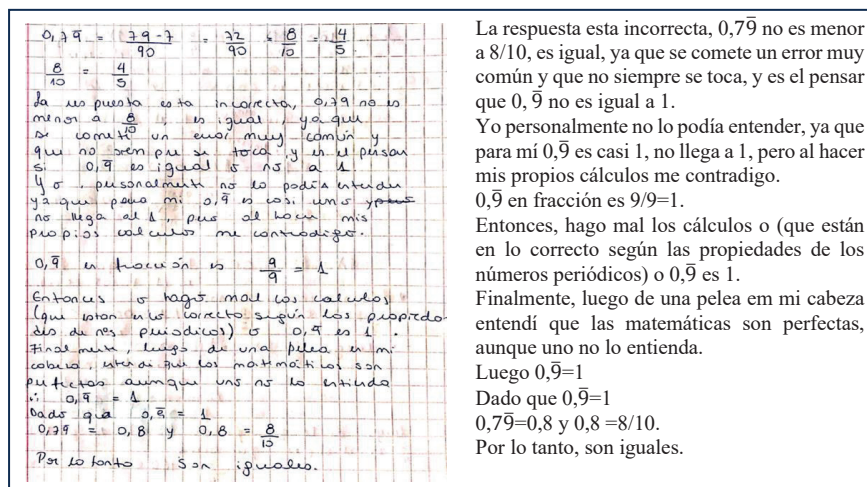 0,79̅ = 79-7/90 = 72/90 = 8/10 = 4/5.
8/10 = 4/5
La respuesta esta incorrecta, 0,79 no es
menor a 8/10, es igual, ya que
se cometi un error muy común y
que no siempre se toca, y es el pensar
si 0,9̅ es igual o no a 1
Yo, personalmente no lo podía entender
ya que para mi 0,9̅ es casi uno y pero
no llega al 1, pero al hacer mis
propios calculos me contradigo.
0,9̅ en fracción es 9/9 = 1
Entonces o hago mal los calculos
(que estan en lo correcto según las propieda-
des de n⁰s periodicos) o 0,9̅ es 1.
Finalmente, luego de una pelea en mi
cabeza, entendí que las matemáticas son
perfectas aunque uno no lo entienda
∴ 0,9̅ = 1.
Dado que 0,9̅ = 1
0,79 = 0,8 y 0,8 = 8/10
Por lo tanto son iguales.
La respuesta esta incorrecta, 0,79̅ no es menor
a 8/10, es igual, ya que se comete un error muy
común y que no siempre se toca, y es el pensar
que 0, 9̅ no es igual a 1.
Yo personalmente no lo podía entender, ya que
para mí 0,9̅ es casi 1, no llega a 1, pero al hacer
mis propios cálculos me contradigo.
0,9̅ en fracción es 9/9=1.
Entonces, hago mal los cálculos o (que están
en lo correcto según las propiedades de los
números periódicos) o 0,9̅ es 1.
Finalmente, luego de una pelea em mi cabeza
entendí que las matemáticas son perfectas,
aunque uno no lo entienda.
Luego 0,9̅=1
Dado que 0,9̅=1
0,79̅=0,8 y 0,8 =8/10.
Por lo tanto, son iguales.